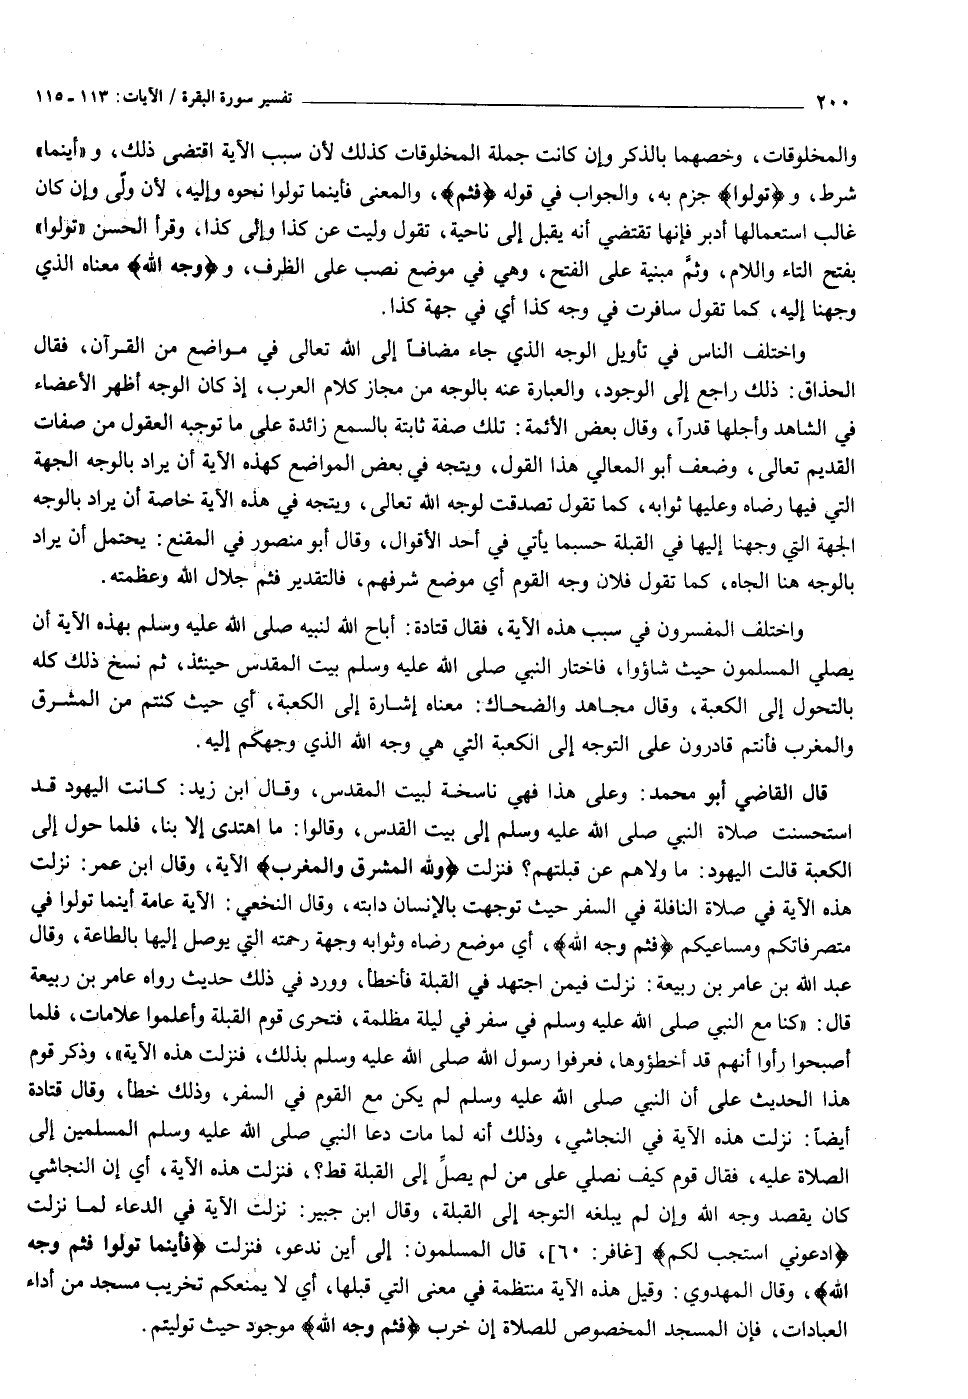 ٢٠٠ تفسير سورة البقرة / الآيات: ١١٣ ـ ١١٥
والمخلوقات، وخصهما بالذكر وإن كانت جملة المخلوقات كذلك لأن سبب الآية اقتضى ذلك، و «أينما»
شرط، و ﴿تولوا﴾ جزم به، والجواب في قوله ﴿فثم﴾، والمعنى فأينما تولوا نحوه وإليه، لأن ولّى وإن كان
غالب استعمالها أدبر فإنها تقتضي أنه يقبل إلى ناحية، تقول وليت عن كذا وإلى كذا، وقرأ الحسن «تولوا»
بفتح التاء واللام، وثمَّ مبنية على الفتح، وهي في موضع نصب على الظرف، و ﴿وجه الله﴾ معناه الذي
وجهنا إليه، كما تقول سافرت في وجه كذا أي في جهة كذا.
واختلف الناس في تأويل الوجه الذي جاء مضافاً إلى الله تعالى في مواضع من القرآن، فقال
الحذاق: ذلك راجع إلى الوجود، والعبارة عنه بالوجه من مجاز كلام العرب، إذ كان الوجه أظهر الأعضاء
في الشاهد وأجلها قدراً، وقال بعض الأئمة: تلك صفة ثابتة بالسمع زائدة على ما توجبه العقول من صفات
القديم تعالى، وضعف أبو المعالي هذا القول، ويتجه في بعض المواضع كهذه الآية أن يراد بالوجه الجهة
التي فيها رضاه وعليها ثوابه، كما تقول تصدقت لوجه الله تعالى، ويتجه في هذه الآية خاصة أن يراد بالوجه
الجهة التي وجهنا إليها في القبلة حسبما يأتي في أحد الأقوال، وقال أبو منصور في المقنع: يحتمل أن يراد
بالوجه هنا الجاه، كما تقول فلان وجه القوم أي موضع شرفهم، فالتقدير فثم جلال الله وعظمته.
واختلف المفسرون في سبب هذه الآية، فقال قتادة: أباح الله لنبيه صلى الله عليه وسلم بهذه الآية أن
يصلي المسلمون حيث شاؤوا، فاختار النبي صلى الله عليه وسلم بيت المقدس حينئذ، ثم نسخ ذلك كله
بالتحول إلى الكعبة، وقال مجاهد والضحاك: معناه إشارة إلى الكعبة، أي حيث كنتم من المشرق
والمغرب فأنتم قادرون على التوجه إلى الكعبة التي هي وجه الله الذي وجهكم إليه.
قال القاضي أبو محمد: وعلى هذا فهي ناسخة لبيت المقدس، وقال ابن زيد: كانت اليهود قد
استحسنت صلاة النبي صلى الله عليه وسلم إلى بيت القدس، وقالوا: ما اهتدى إلا بنا، فلما حول إلى
الكعبة قالت اليهود: ما ولاهم عن قبلتهم؟ فنزلت ﴿ولله المشرق والمغرب﴾ الآية، وقال ابن عمر: نزلت
هذه الآية في صلاة النافلة في السفر حيث توجهت بالإنسان دابته، وقال النخعي: الآية عامة أينما تولوا في
متصرفاتكم ومساعيكم ﴿فثم وجه الله﴾، أي موضع رضاه وثوابه وجهة رحمته التي يوصل إليها بالطاعة، وقال
عبد الله بن عامر بن ربيعة: نزلت فيمن اجتهد في القبلة فأخطأ، وورد في ذلك حديث رواه عامر بن ربيعة
قال: «كنا مع النبي صلى الله عليه وسلم في سفر في ليلة مظلمة، فتحرى قوم القبلة وأعلموا علامات، فلما
أصبحوا رأوا أنهم قد أخطؤوها، فعرفوا رسول الله صلى الله عليه وسلم بذلك، فنزلت هذه الآية»، وذكر قوم
هذا الحديث على أن النبي صلى الله عليه وسلم لم يكن مع القوم في السفر، وذلك خطأ، وقال قتادة
أيضاً: نزلت هذه الآية في النجاشي، وذلك أنه لما مات دعا النبي صلى الله عليه وسلم المسلمين إلى
الصلاة عليه، فقال قوم كيف نصلي على من لم يصلِّ إلى القبلة قط؟، فنزلت هذه الآية، أي إن النجاشي
كان يقصد وجه الله وإن لم يبلغه التوجه إلى القبلة، وقال ابن جبير: نزلت الآية في الدعاء لما نزلت
﴿ادعوني استجب لكم﴾ [غافر: ٦٠]، قال المسلمون: إلى أين ندعو، فنزلت ﴿فأينما تولوا فثم وجه
الله﴾، وقال المهدوي: وقيل هذه الآية منتظمة في معنى التي قبلها، أي لا يمنعكم تخريب مسجد من أداء
العبادات، فإن المسجد المخصوص للصلاة إن خرب ﴿فثم وجه الله﴾ موجود حيث توليتم.